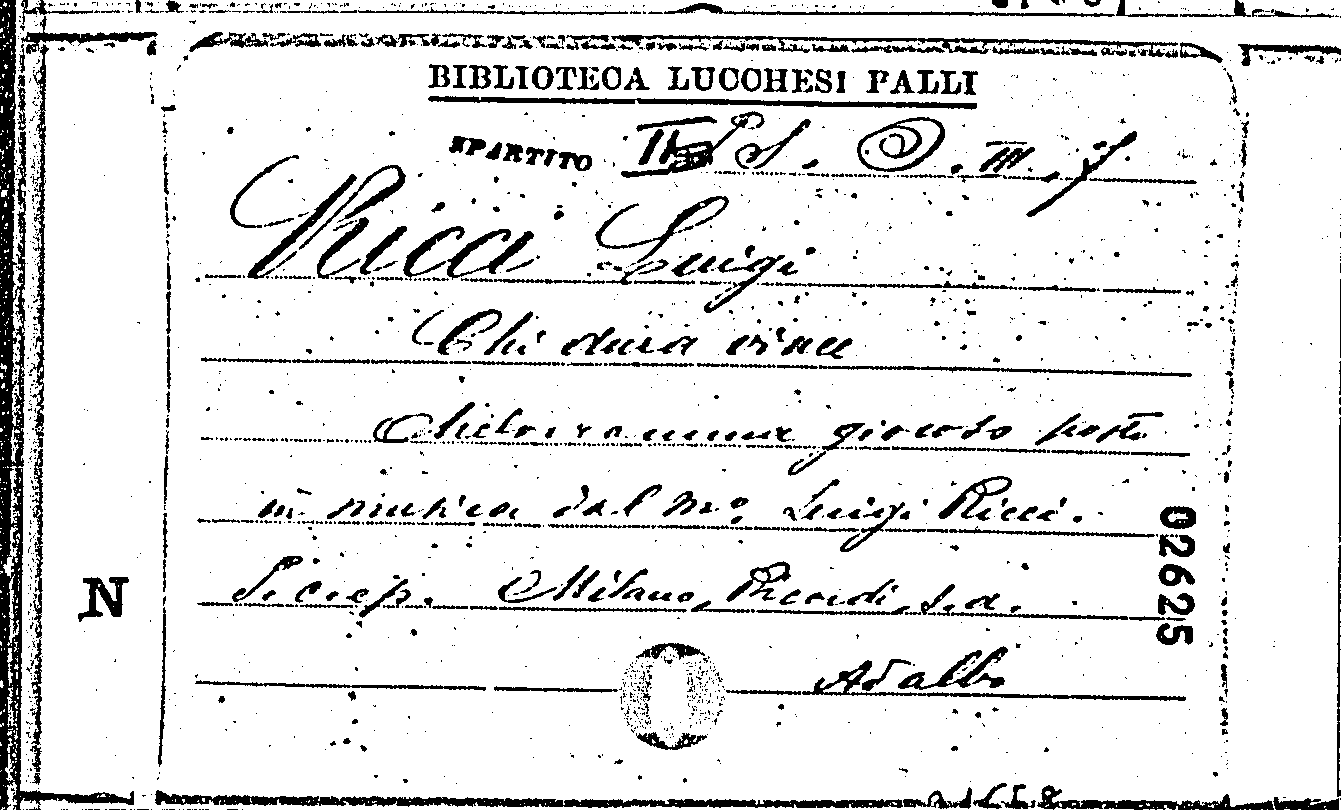 BIBLIOTECA LUCCHESI PALLI
RPARTITO III. 7
Ricci Luigi
Chi dura vince
Melodramma giocoso posto
in musica dal M.o Luigi Ricci.
P. c. e p. Milano, Ricordi, s. a.
Ad albo
02625
N